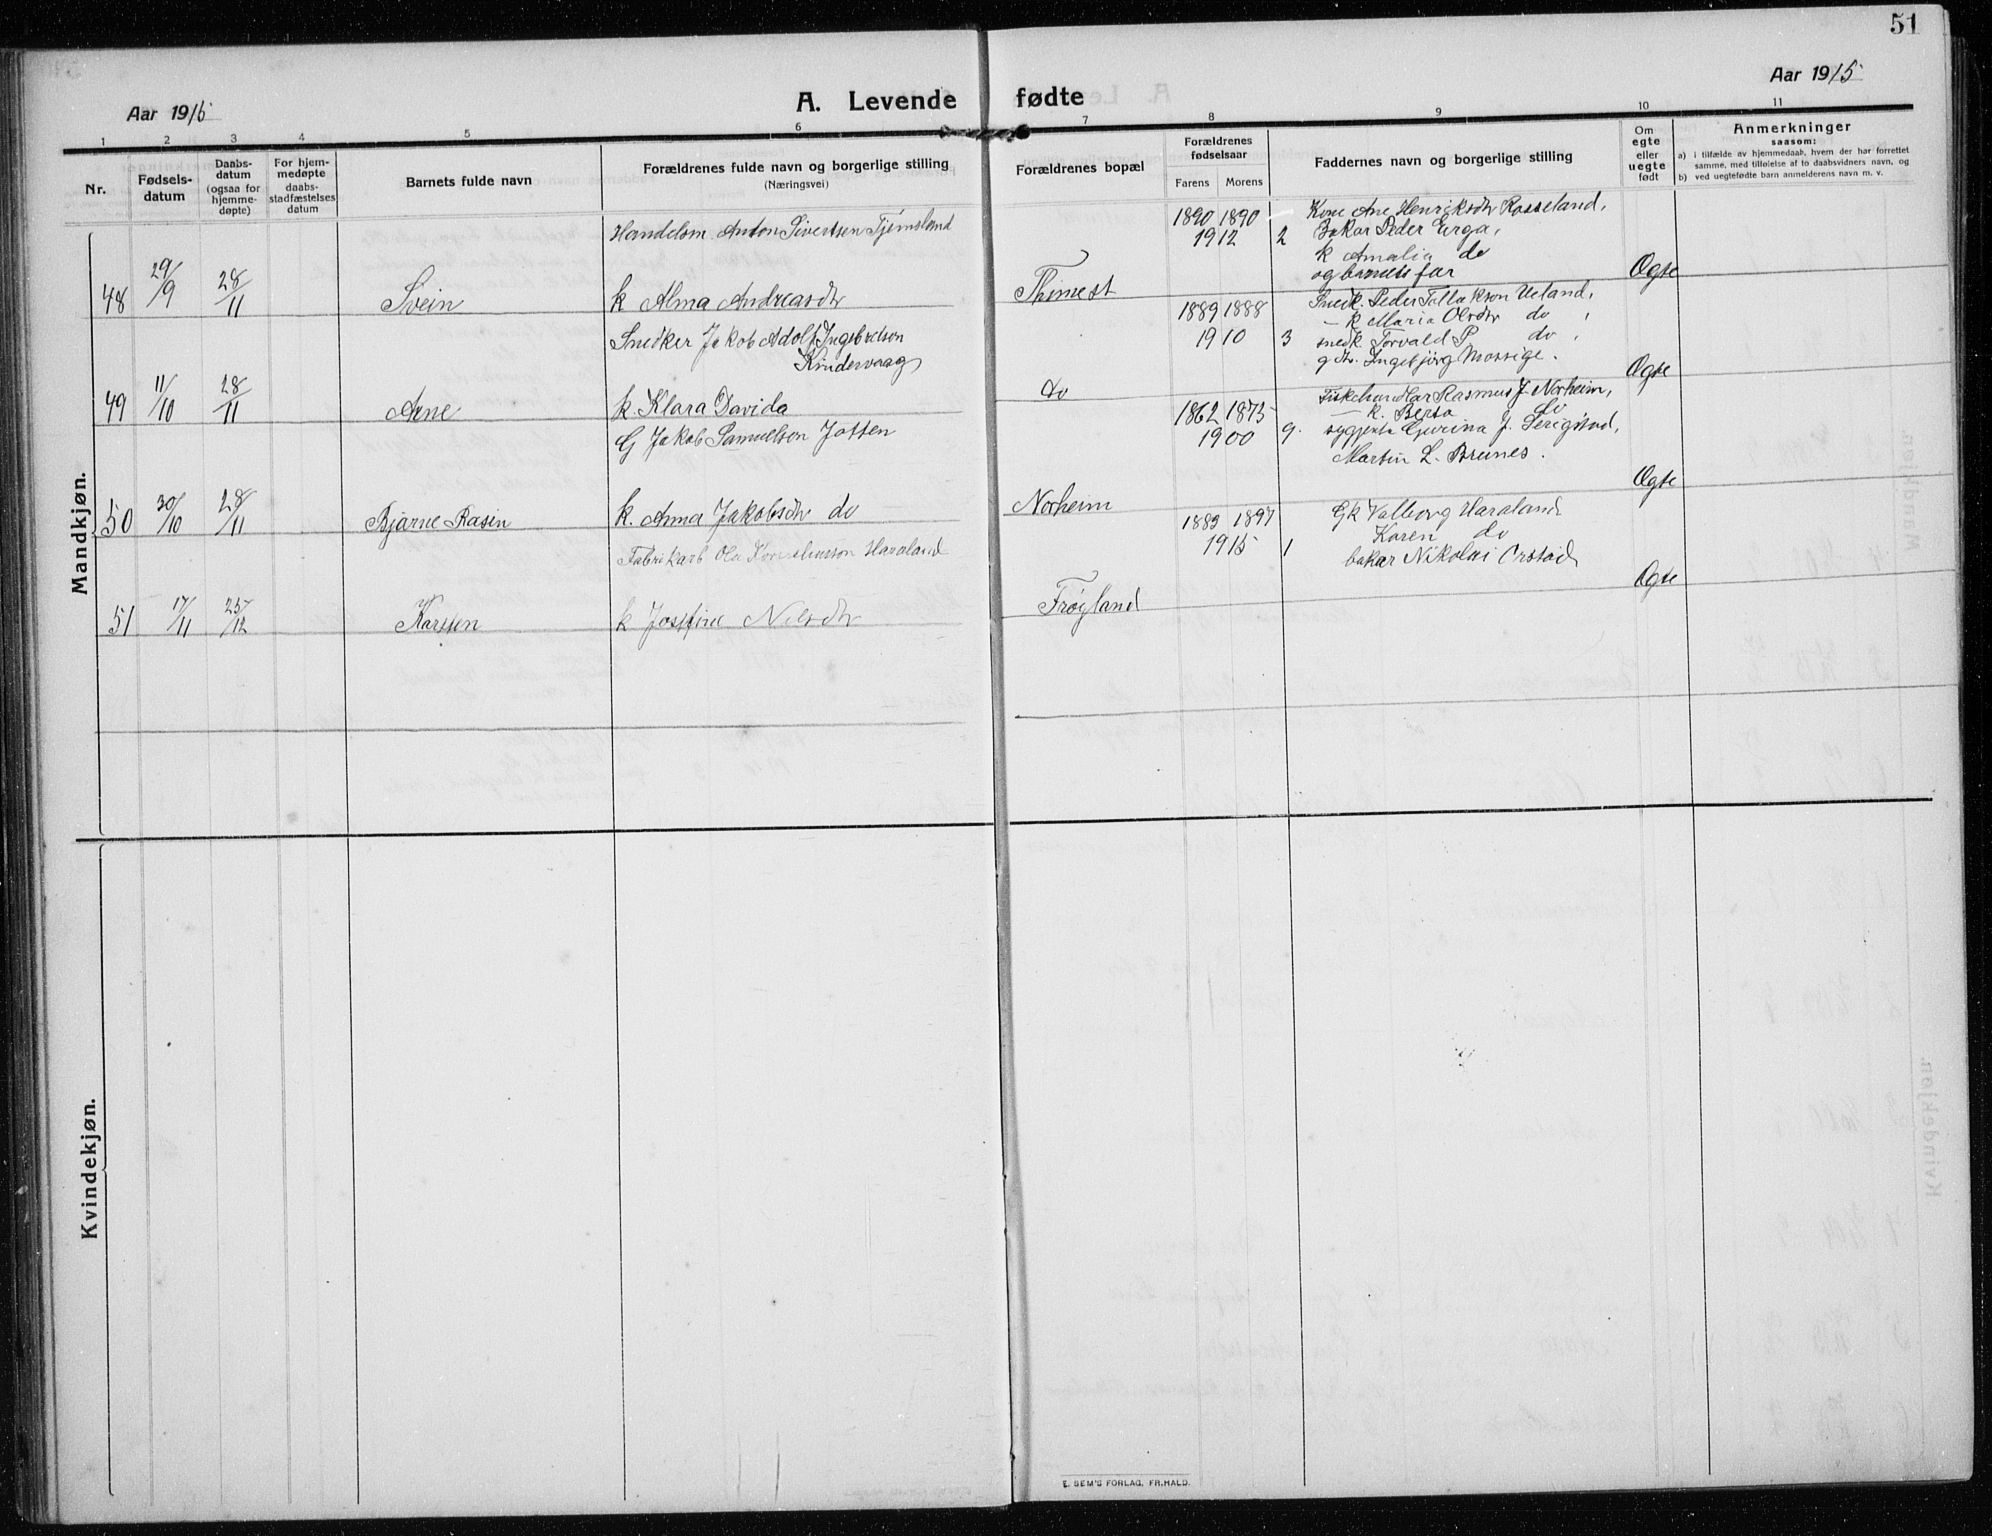 51
Aar 1915
A. Levende fødte
Aar 1915
1 2 3 4 5 6 7 8 9 10 11
Nr.
Fødsels-
datum
Daabs-
datum
(ogsaa for
hjemme-
døpte)
For hjem-
medøpte
daabs-
stadfæstelses
datum
Barnets fulde navn
Forældrenes fulde navn og borgerlige stilling
(Næringsvei)
Forældrenes bopæl
Forældrenes
fødselsaar
Farens Morens
Faddernes navn og borgerlige stilling
Om
egte
eller
uegte
født
Anmerkninger
saasom:
a) i tilfælde av hjemmedaab, hvem der har forrettet
samme, med tilføielse af to daabsvidners navn, og
b) ved uegtefødte barn anmelderens navn m. v.
Mandkjøn.
Handelsm. Anton Sivertsen Tjemsland
48 29/9 28/11 Svein k Alma Andreasdtr
Thimest
1890 1890
1912 2
Kone Ane Henriksdtr Rosseland,
Bakar Peder Erga,
k Amalia do
og barnets far
Ogte
Snedker Jakob Adolf Ingebretson
Kindervaag
49 11/10 28/11 Arne k Klara Davida
do
1889 1888
1910 3
Snedk. Peder Tollakson Ueland,
- k Maria Olsdtr do,
snedk Torvald P do,
g.dtr. Ingebjørg Mossige.
Ogte
G Jakob Samuelson Jotten
50 30/10 28/11 Bjarne Rasin k. Anna Jakobsdtr do
Norheim
1862 1875
1900 9.
Fiskehandlar Rasmus J. Norheim,
- k. Berta do
sygjenta Gurina J. Serigstad,
Martin L. Brunes.
Ogte
Fabrikarb Ola Korneliusson Haraland
51 17/11 25/12 Karsten k Josefine Nilsdtr
Frøyland
1889 1897
1915 1
Gk Valborg Haraland
Karen do
bakar Nikolai Orstad
Ogte
Kvindekjøn.
E. SEM'S FORLAG, FR.HALD.